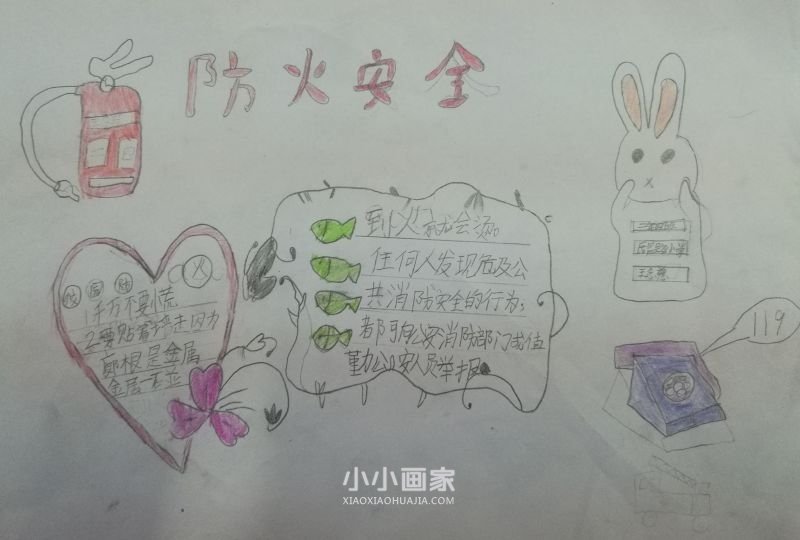 防火安全
119
到火就会汤。
任何人发现危及公
共消防安全的行为,
都可向公安消防部门或值
勤公安人员举报
火
1千万不要慌
2要贴着墙走因为
廊根是金属
金属
小小画家
XIAOXIAOHUAJIA.COM